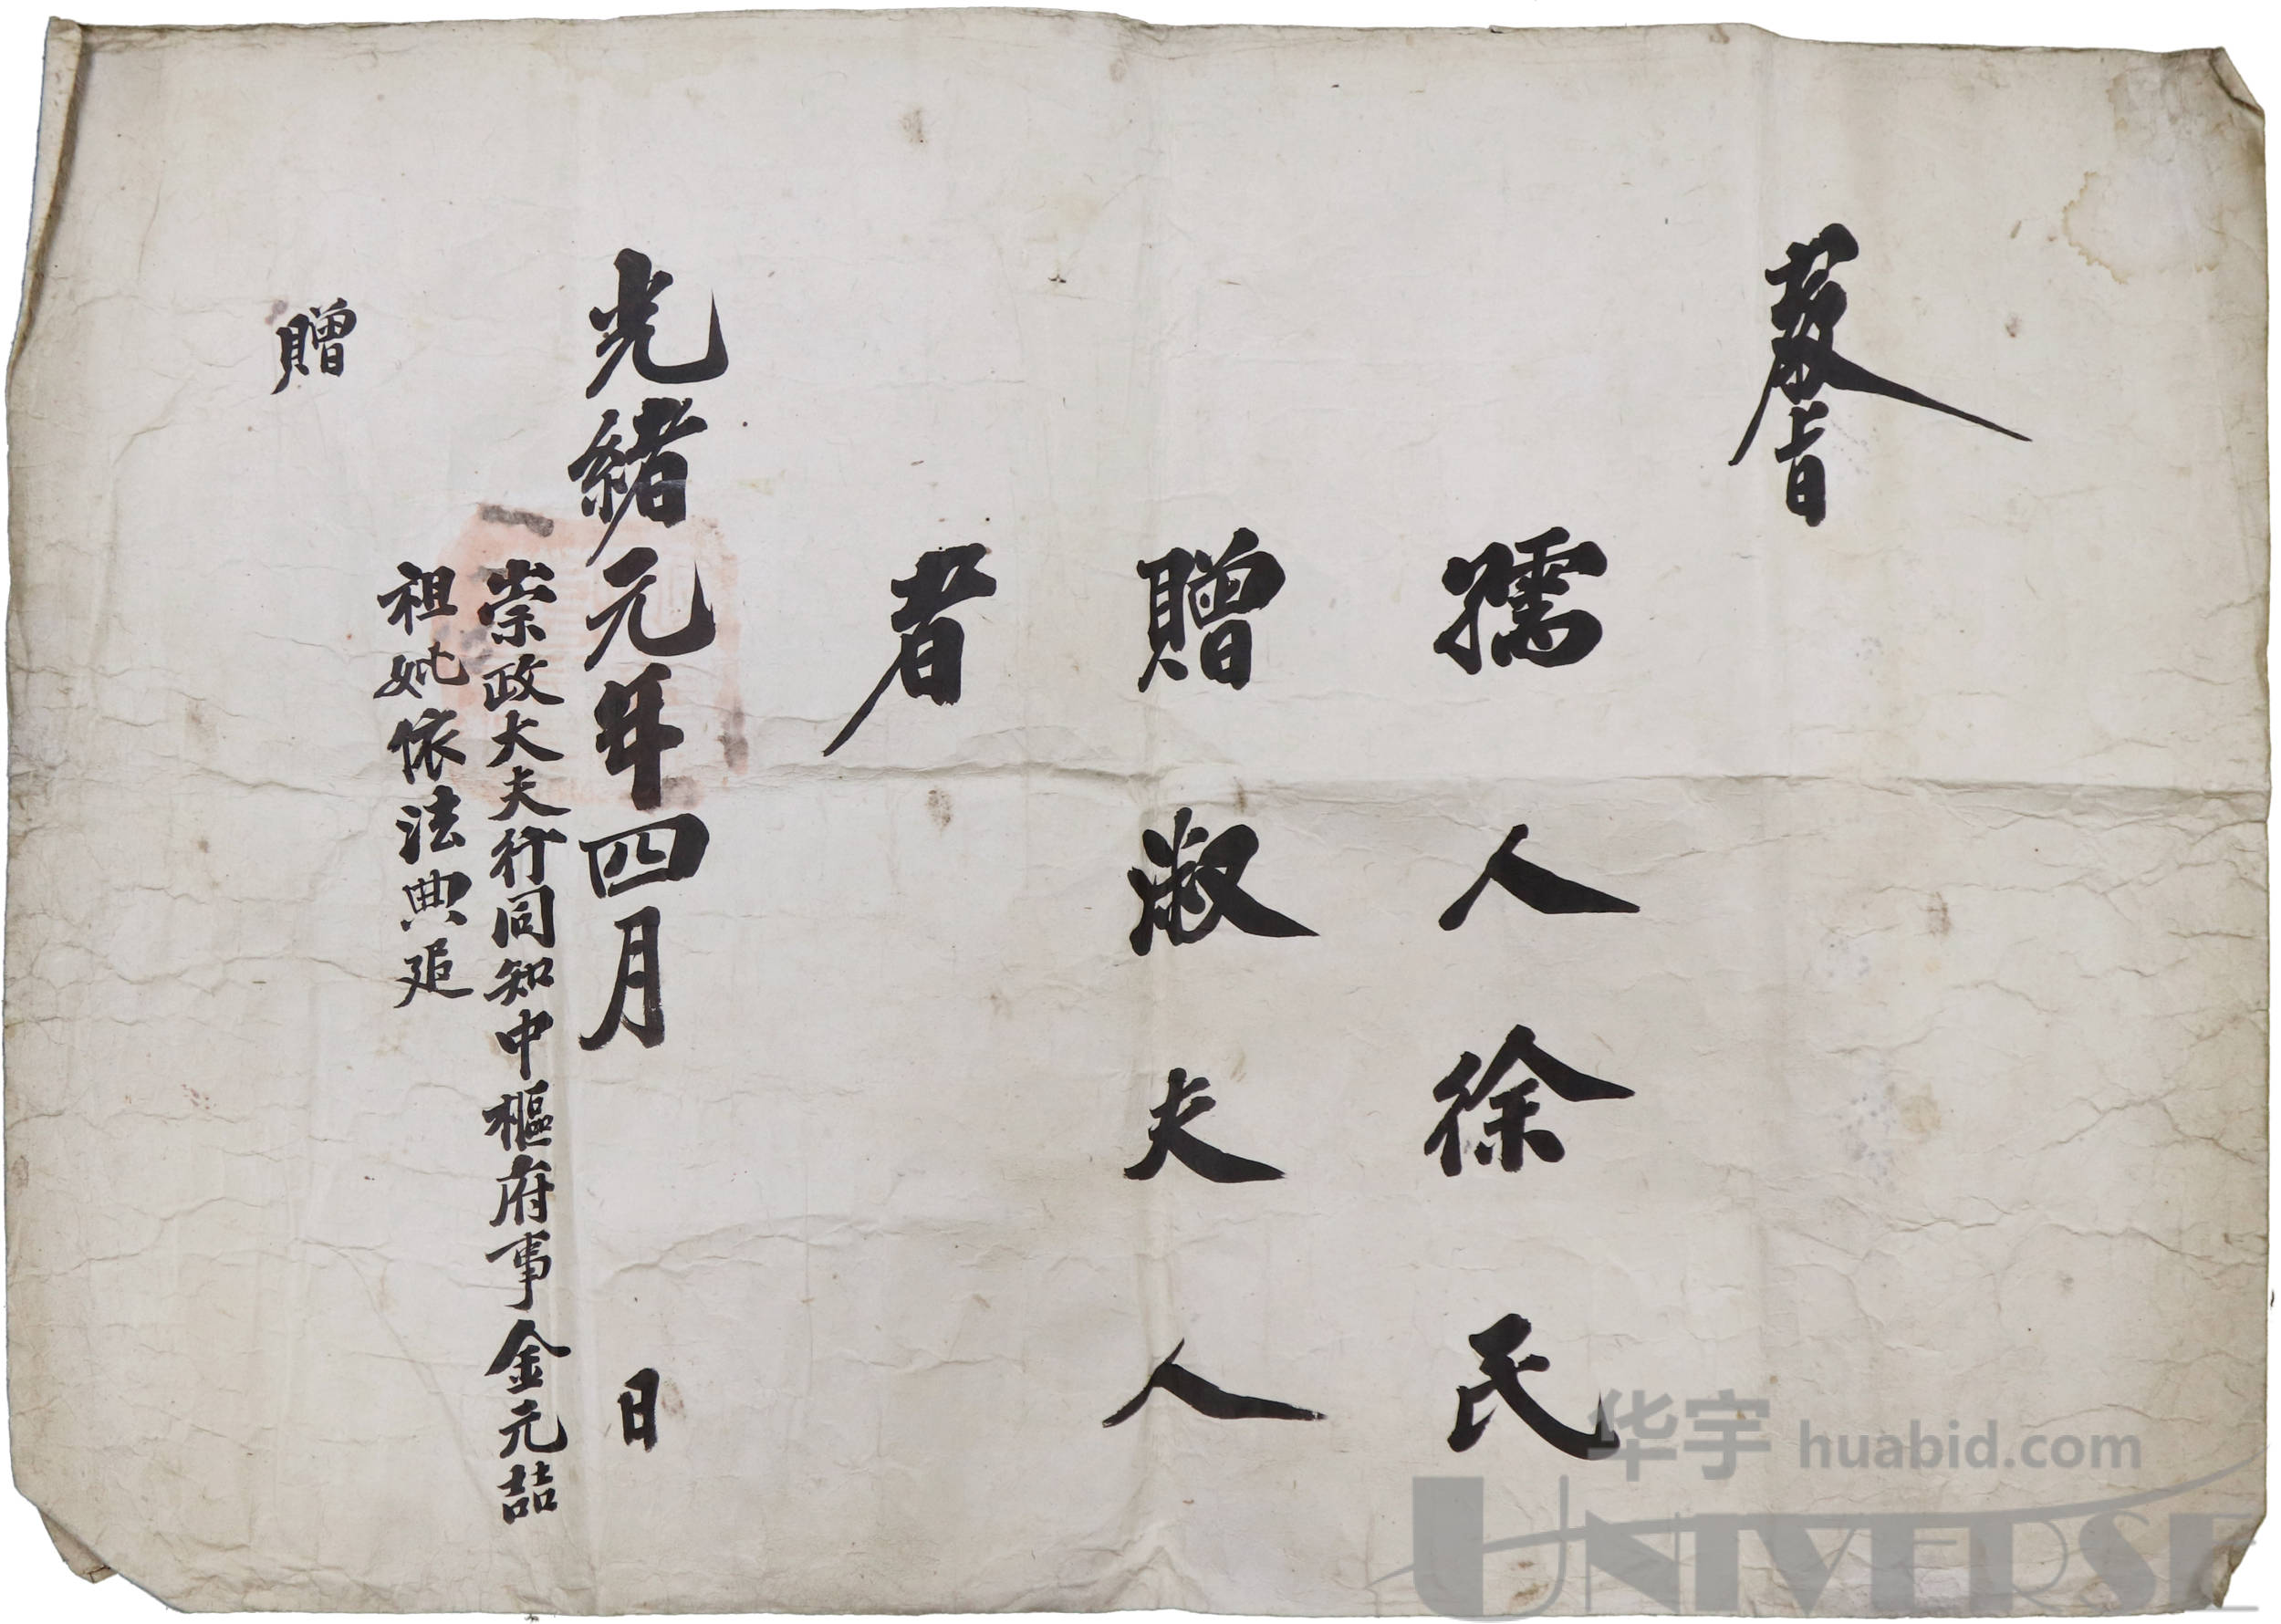 敎旨
孺人徐氏
贈淑夫人
者
光緖元年四月 日
崇政大夫行同知中樞府事金元喆
祖妣依法典追
贈
华宇 huabid.com
UNIVERSE